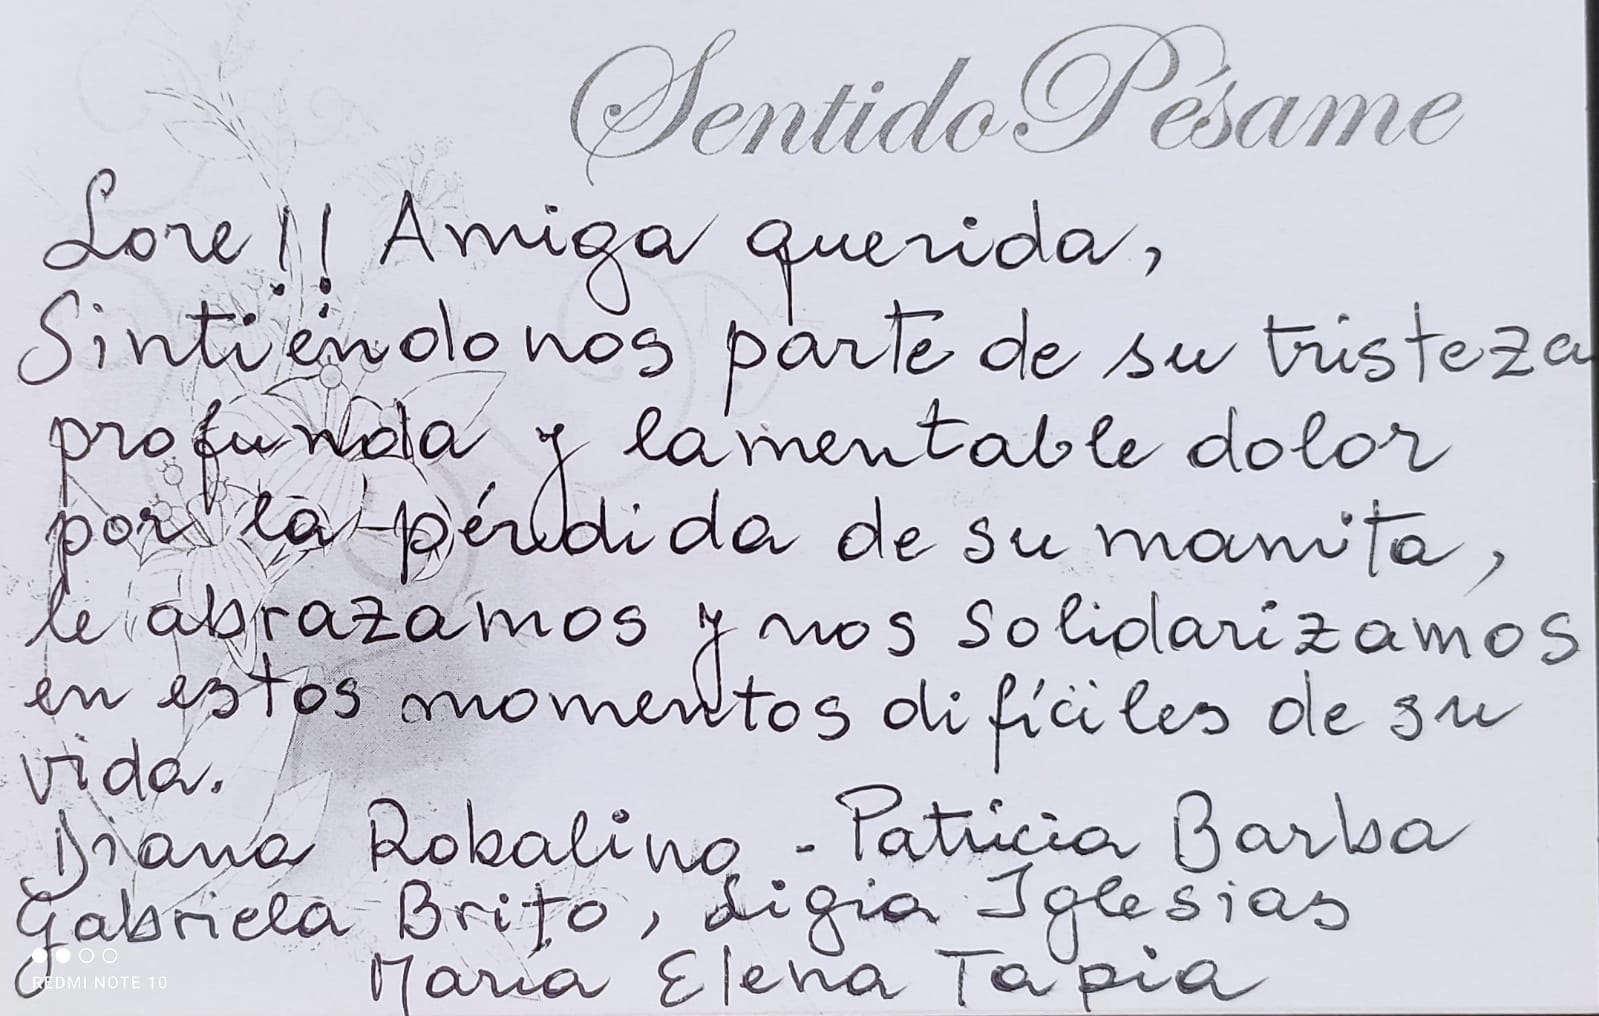 Sentido Pésame
Lore!! Amiga querida,
Sintiéndonos parte de su tristeza
profunda y lamentable dolor
por la pérdida de su mamita,
le abrazamos y nos solidarizamos
en estos momentos difíciles de su
vida.
Diana Robalino - Patricia Barba
Gabriela Brito, Ligia Iglesias
María Elena Tapia
REDMI NOTE 10